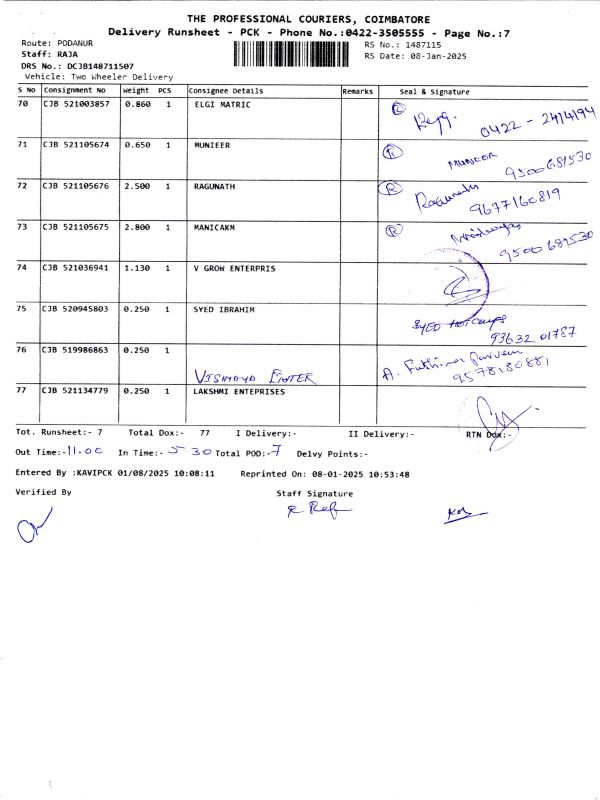 THE PROFESSIONAL COURIERS, COIMBATORE
Delivery Runsheet - PCK - Phone No.:0422-3505555 - Page No.:7
Route: PODANUR RS No.: 1487115
Staff: RAJA RS Date: 08-Jan-2025
DRS No.: DCJB148711507
Vehicle: Two Wheeler Delivery
S No Consignment No Weight PCS Consignee Details Remarks Seal & Signature
70 CJB 521003857 0.860 1 ELGI MATRIC
0422 - 2414194
71 CJB 521105674 0.650 1 MUNIEER R MUNEER
9500689530
72 CJB 521105676 2.500 1 RAGUNATH R Ragunath
9677160819
73 CJB 521105675 2.800 1 MANICAKM R
9500689530
74 CJB 521036941 1.130 1 V GROW ENTERPRIS
75 CJB 520945803 0.250 1 SYED IBRAHIM
SYED
93632 01787
76 CJB 519986863 0.250 1 A. Fathima Parveen
VISMAYA 9578180881
77 CJB 521134779 0.250 1 LAKSHMI ENTEPRISES
Tot. Runsheet:- 7 Total Dox:- 77 I Delivery:- II Delivery:- RTN Dox:-
Out Time:- 11.00 In Time:- 5 30 Total POD:- 7 Delvy Points:-
Entered By :KAVIPCK 01/08/2025 10:08:11 Reprinted On: 08-01-2025 10:53:48
Verified By Staff Signature